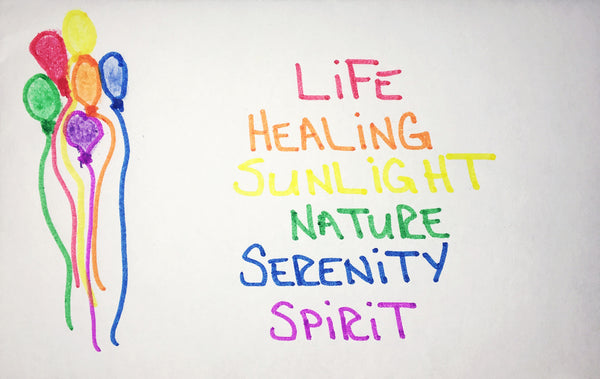 LiFE
HEALiNG
SUNLiGHT
NATURE
SERENiTY
SPiRiT